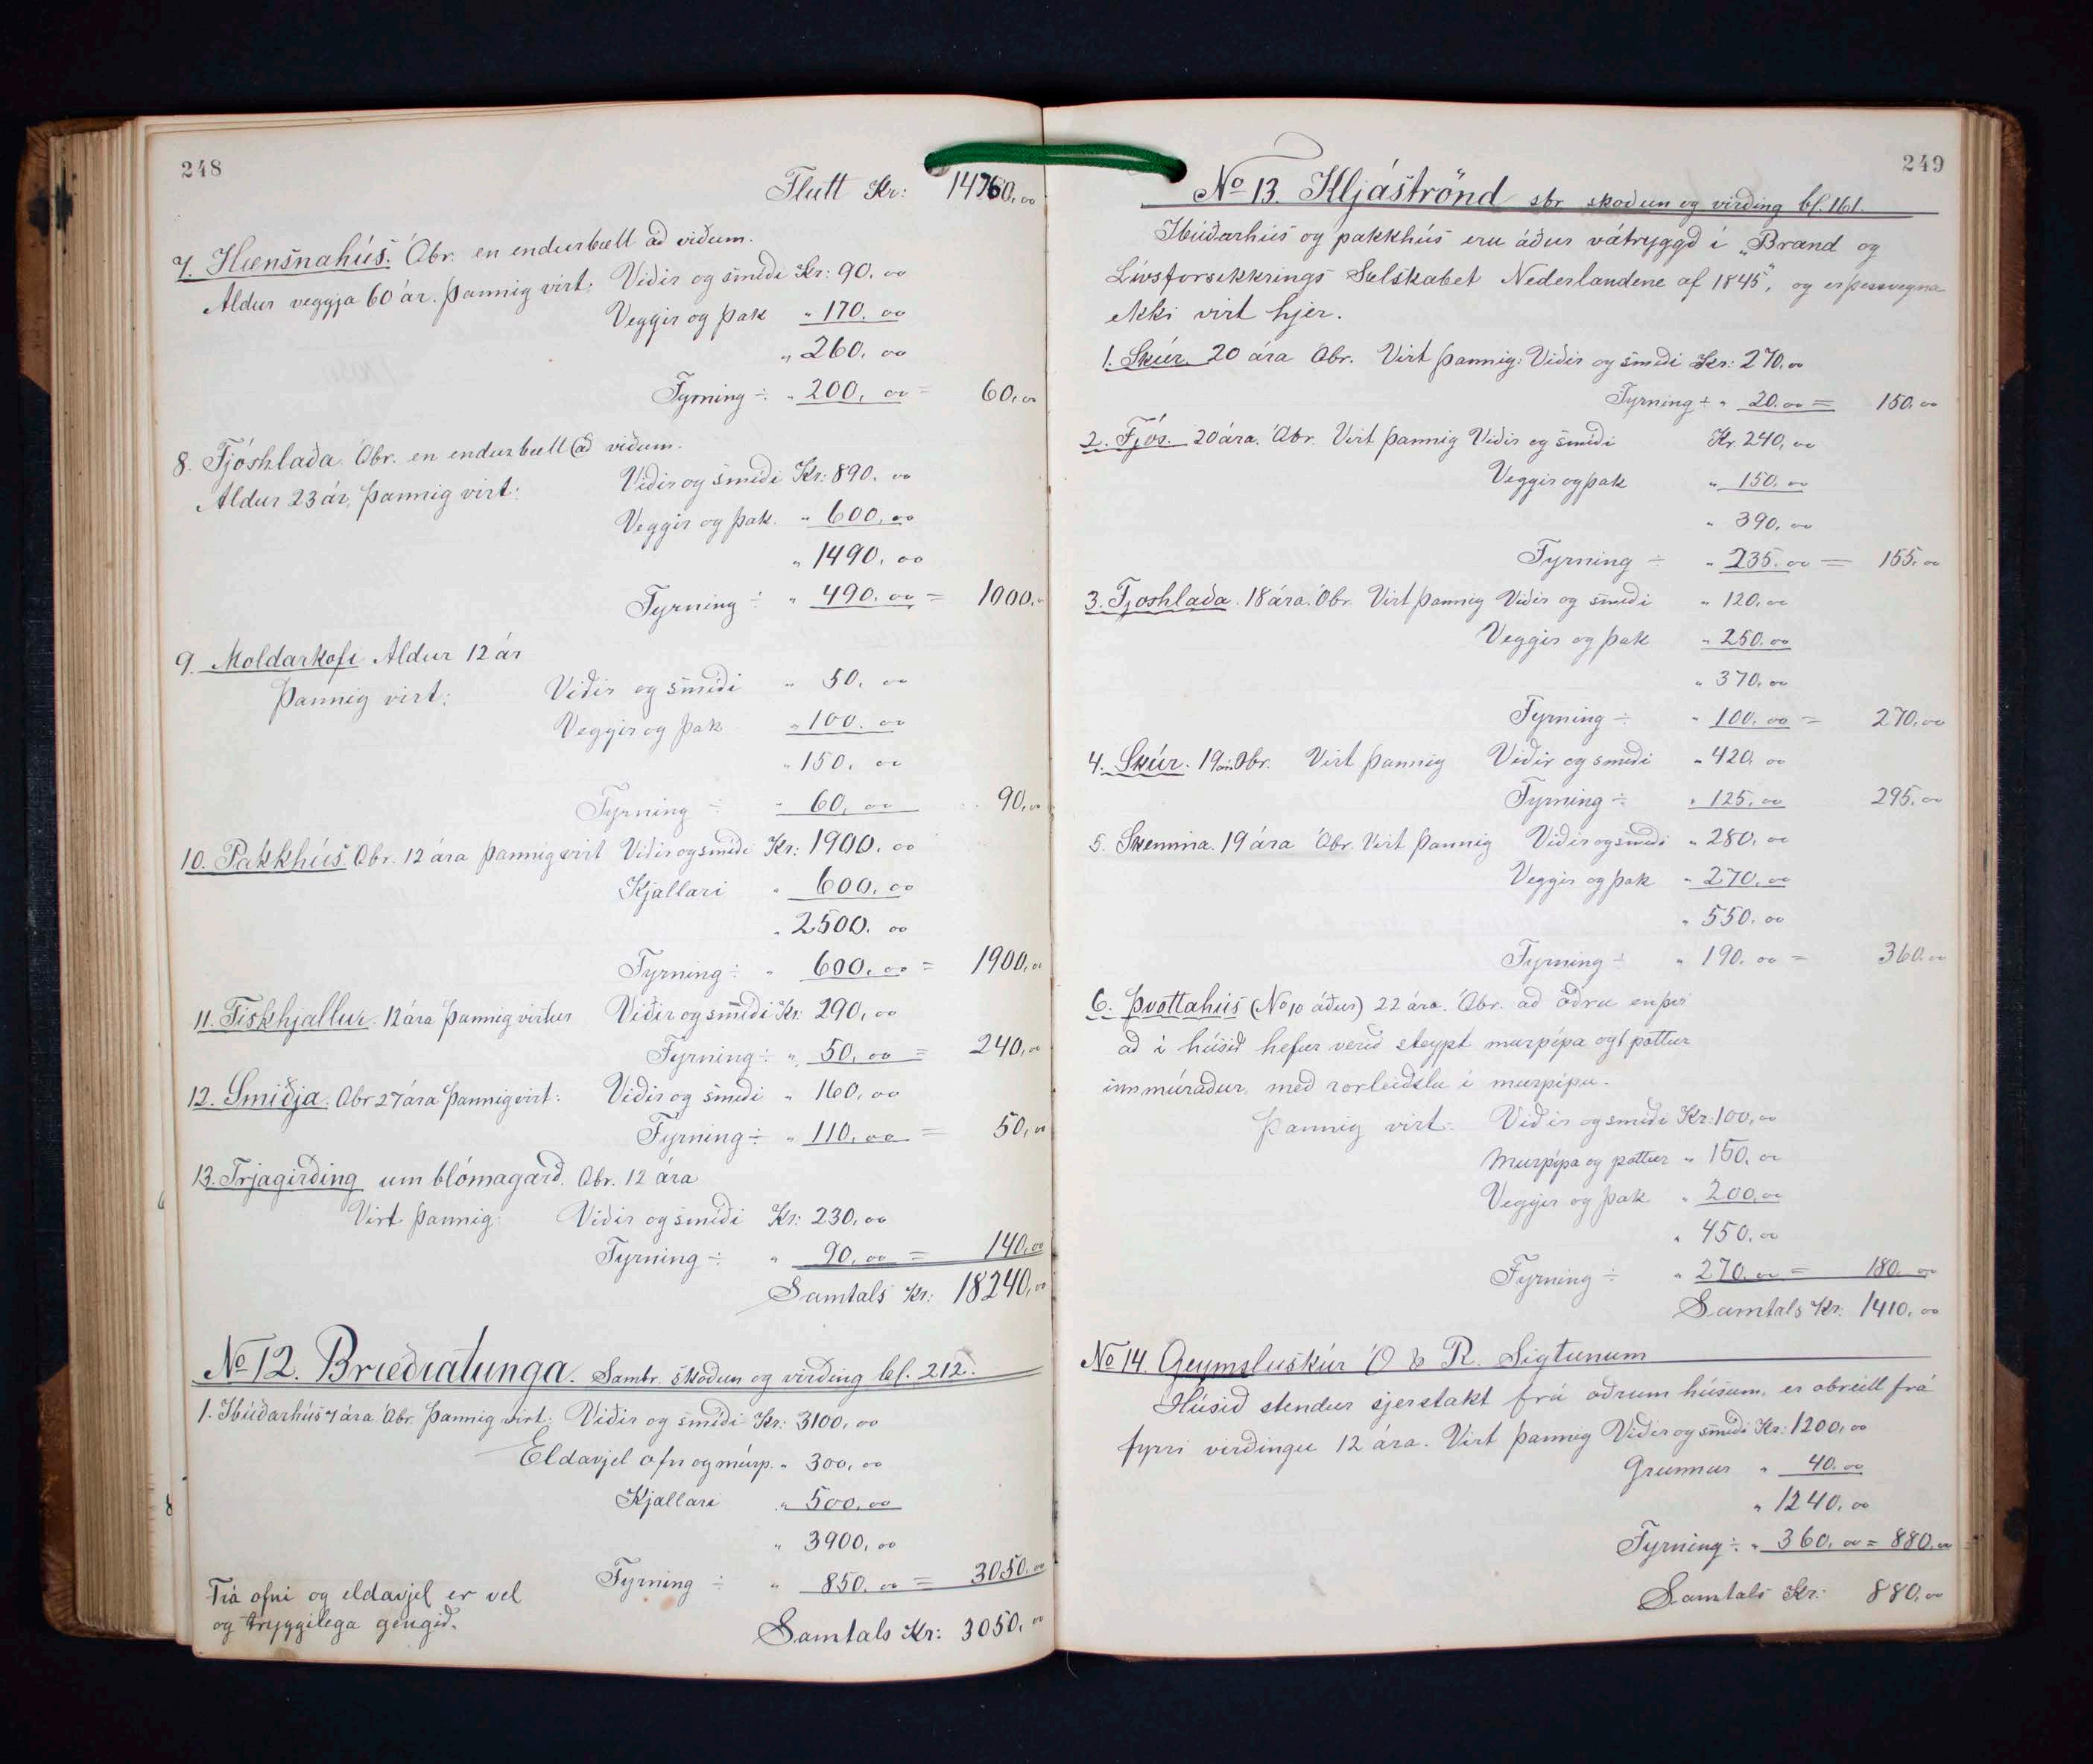 248
Flutt Kr: 14760,00
7. Hænsnahús. Óbr. en endurbætt að viðum.
Aldur veggja 60 ár. Þannig virt: Viðir og smíði Kr: 90,00
Veggir og þak " 170,00
" 260,00
Fyrning ÷ " 200,00 = 60,00
8. Fjóshlaða. Óbr. en endurbætt að viðum.
Aldur 23 ár, þannig virt: Viðir og smíði Kr: 890,00
Veggir og þak. " 600,00
" 1490,00
Fyrning ÷ " 490,00 = 1000,
9. Moldarkofi Aldur 12 ár
Þannig virt: Viðir og smíði " 50,00
Veggir og þak " 100,00
" 150,00
Fyrning ÷ " 60,00 90,00
10. Pakkhús. Óbr. 12 ára þannig virt Viðir og smíði Kr: 1900,00
Kjallari " 600,00
" 2500,00
Fyrning ÷ " 600,00 = 1900,00
11. Fiskhjallur. 12 ára þannig virtur Viðir og smíði Kr: 290,00
Fyrning ÷ " 50,00 = 240,00
12. Smiðja. Óbr 27 ára þannig virt: Viðir og smíði " 160,00
Fyrning ÷ " 110,00 = 50,00
13. Trjagirðing um blómagarð. Óbr. 12 ára
Virt þannig: Viðir og smíði Kr: 230,00
Fyrning ÷ " 90,00 = 140,00
Samtals Kr: 18240,00
No 12. Bræðratunga. Sambr. skoðun og virðing bl. 212.
1. Íbúðarhús 7 ára Óbr. þannig virt: Viðir og smíði Kr: 3100,00
Eldavjel ofn og múrp. " 300,00
Kjallari " 500,00
" 3900,00
Fyrning ÷ " 850,00 = 3050,00
Frá ofni og eldavjel er vel
og tryggilega gengið.
Samtals Kr: 3050,00
249
No 13. Kljáströnd sbr skoðun og virðing bl. 161.
Íbúðarhús og pakkhús eru áður vátryggð í „Brand og
Livsforsikkrings Selskabet Nederlandene af 1845", og er þessvegna
ekki virt hjer.
1. Skúr. 20 ára Óbr. Virt þannig: Viðir og smíði Kr: 270,00
Fyrning ÷ " 20,00 = 150,00
2. Fjós. 20 ára. Óbr. Virt þannig Viðir og smíði Kr. 240,00
Veggir og þak " 150,00
" 390,00
Fyrning ÷ " 235,00 = 155,00
3. Fjoshlaða. 18 ára. Óbr. Virt þannig Viðir og smíði " 120,00
Veggir og þak " 250,00
" 370,00
Fyrning ÷ " 100,00 = 270,00
4. Skúr. 19 ára Óbr. Virt þannig Viðir og smíði " 420,00
Fyrning ÷ " 125,00 295,00
5. Skemma. 19 ára Óbr. Virt þannig Viðir og smíði " 280,00
Veggir og þak " 270,00
" 550,00
Fyrning ÷ " 190,00 = 360,00
6. Þvottahús (No 10 áður) 22 ára. Óbr. að öðru en því
að í húsið hefur verið steypt murpípa og 1 pottur
innmúraður, með rorleiðslu í murpípu.
Þannig virt: Viðir og smíði Kr: 100,00
Murpípa og pottur " 150,00
Veggir og þak " 200,00
" 450,00
Fyrning ÷ " 270,00 = 180,00
Samtals Kr: 1410,00
No 14. Geymsluskúr Ó & R. Sigtunum
Húsið stendur sjerstakt frá öðrum húsum, er obreitt frá
fyrri virðingu 12 ára. Virt þannig Viðir og smíði Kr: 1200,00
Grunnur " 40,00
" 1240,00
Fyrning ÷ " 360,00 = 880,00
Samtals Kr: 880,00